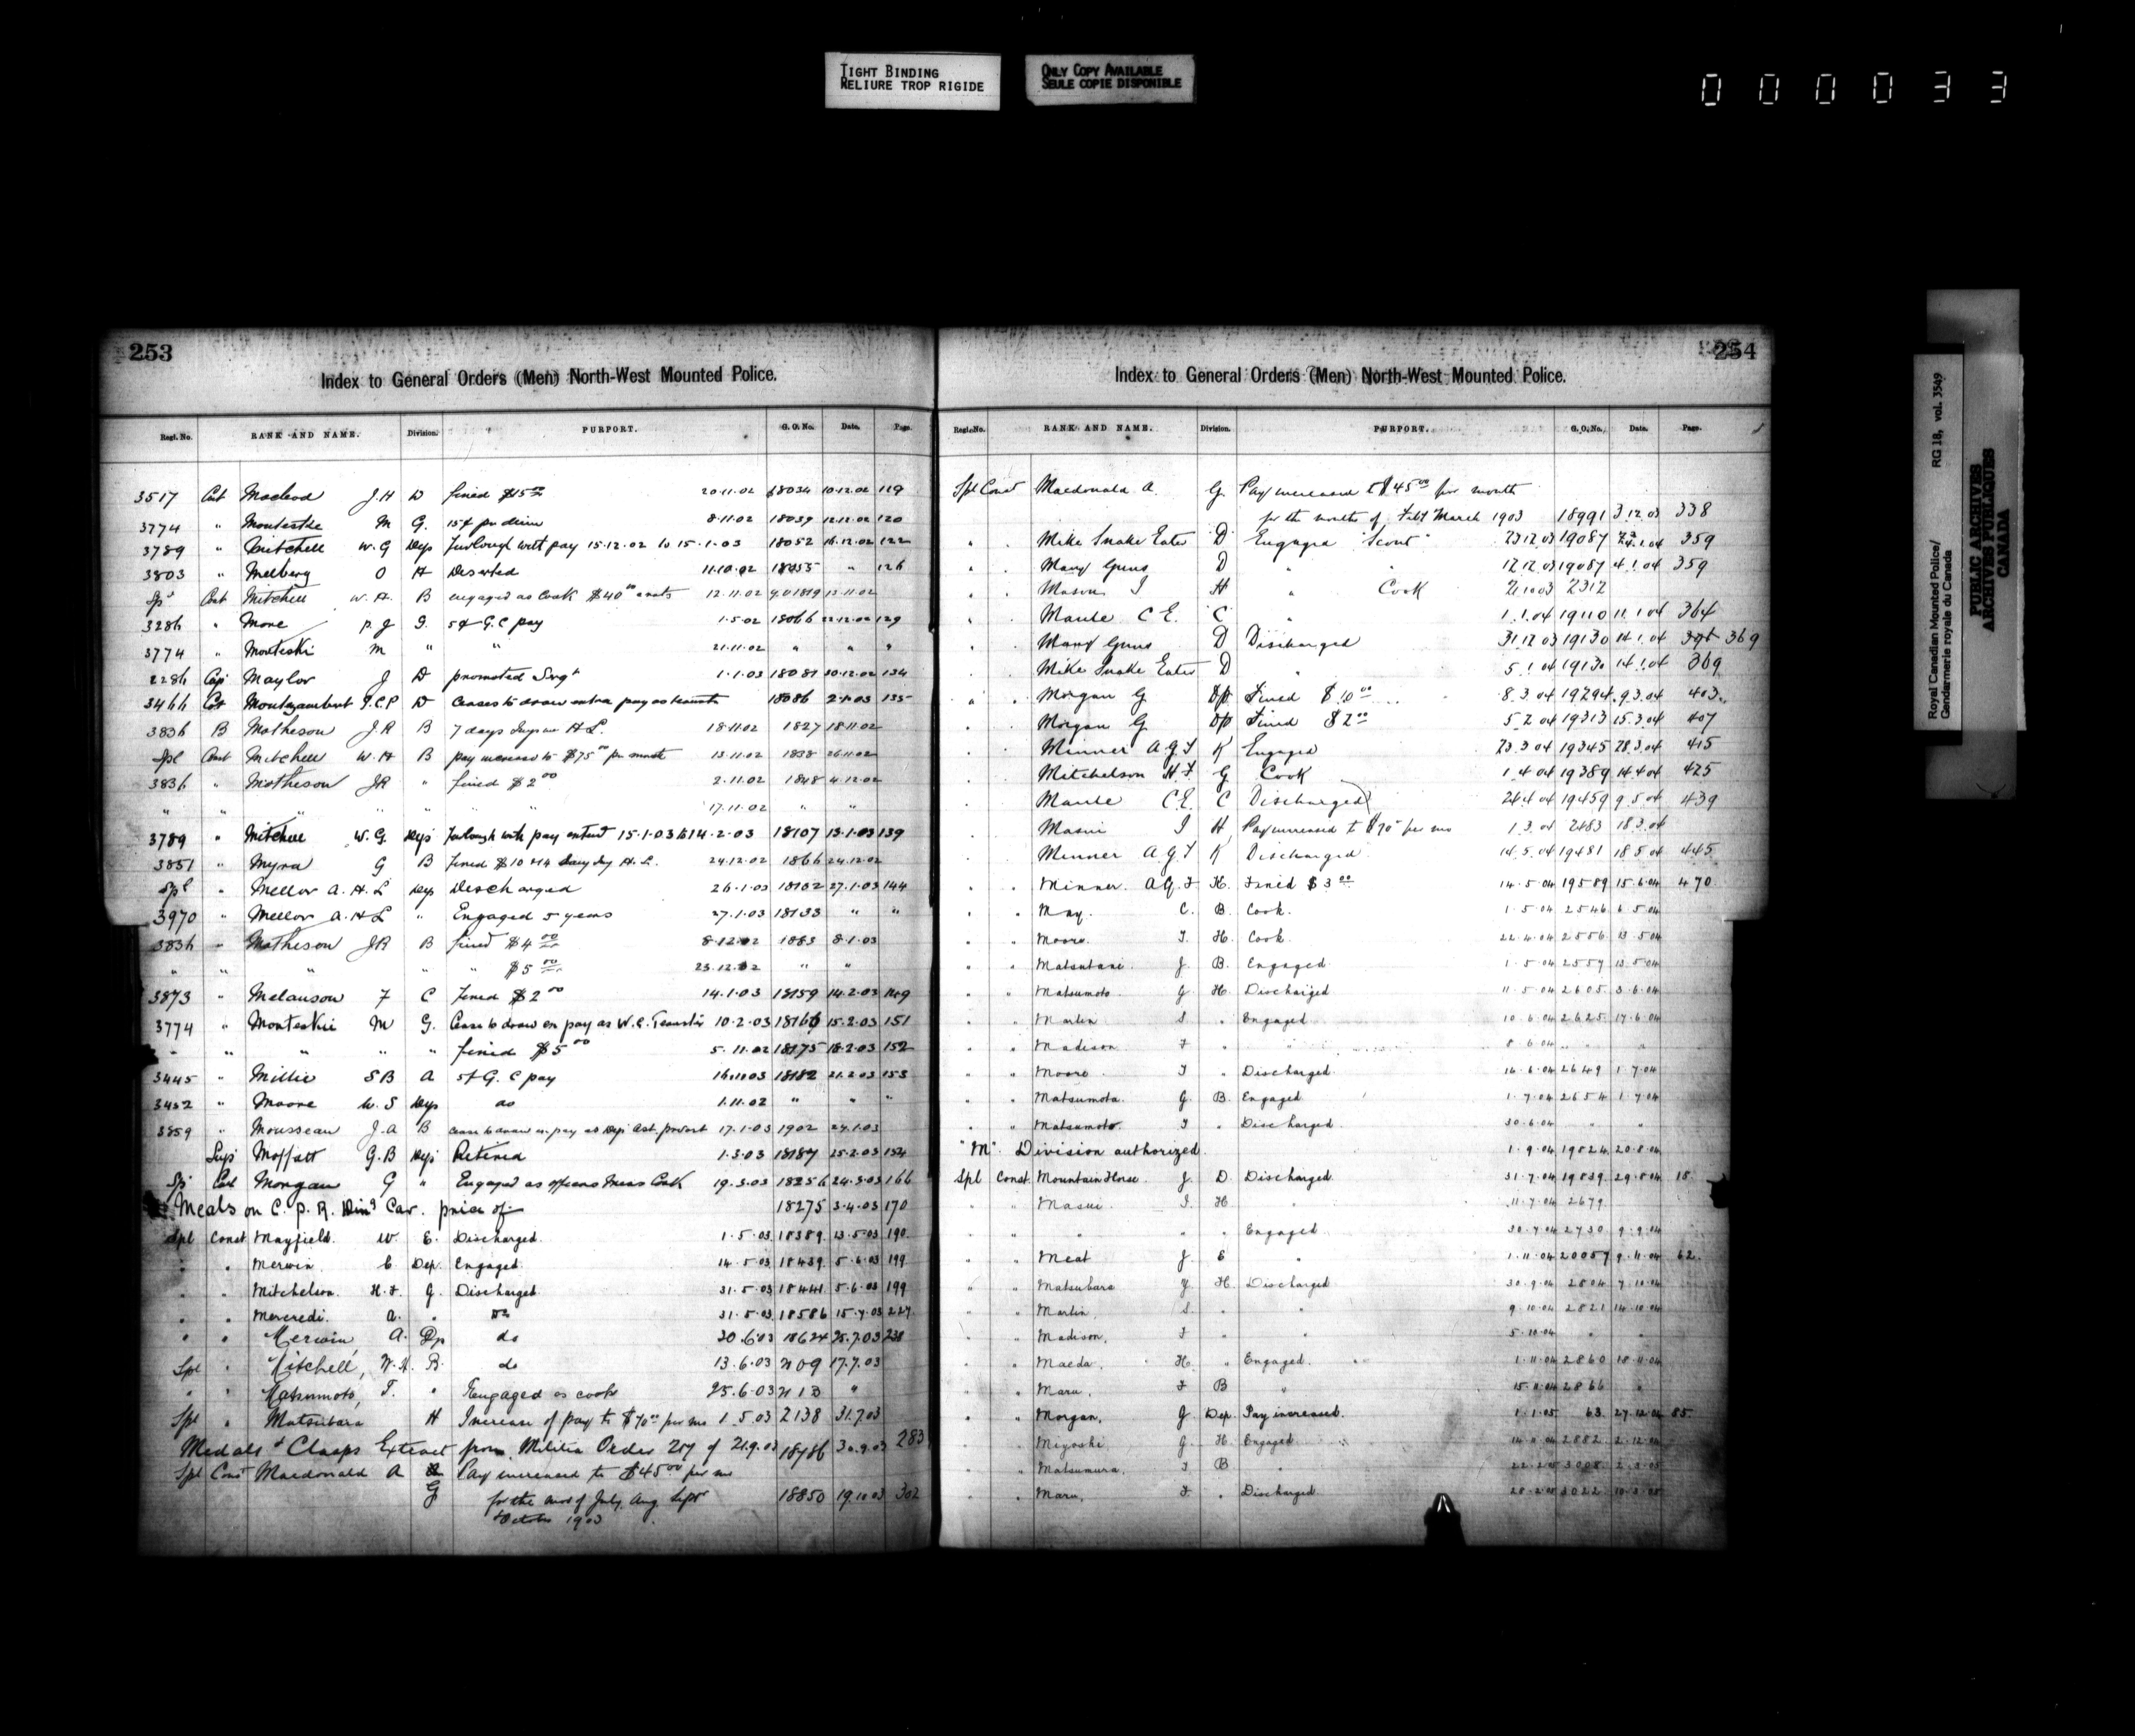 TIGHT BINDING
RELIURE TROP RIGIDE
ONLY COPY AVAILABLE
SEULE COPIE DISPONIBLE
000033
Royal Canadian Mounted Police/
Gendarmerie royale du Canada
RG 18, vol. 3549
PUBLIC ARCHIVES
ARCHIVES PUBLIQUES
CANADA
253
Index to General Orders (Men) North-West Mounted Police.
Regl. No. RANK AND NAME. Division. PURPORT. G. O. No. Date. Page.
3517 Cst Macleod J.H D fined $15 20.11.02 18034 10.12.02 119
3774 " M G. 15¢ per diem 8.11.02 18039 12.12.02 120
3789 " Mitchell W.G Dep Furlough with pay 15.12.02 to 15.1.03 18052 16.12.02 122
3803 " Melberg O A Deserted 11.10.02 " 126
Spl Cst Mitchell W.H. B engaged as Cook $40 12.11.02 13.11.02
3286 " P.J 5¢ G.C pay 1.5.02 18066 22.12.02 129
3774 " Monteski M " " 21.11.02 " " "
2286 Cpl Maylor J D promoted Sergt 1.1.03 18081 30.12.02 134
3466 Cst Montizambert D Ceases to draw extra pay as teamster 18086 2.1.03 135
3836 B Matheson J.R B 7 days H.L. 18.11.02 1827 18.11.02
Spl Const Mitchell W.H B pay increased to $75 00 per month 13.11.02 1838 26.11.02
3836 " Matheson JR " fined $2 00 2.11.02 1848 4.12.02
" " " " " " 17.11.02 " "
3789 " Mitchell W.G. Dep Furlough with pay extend 15.1.03 to 14.2.03 18107 13.1.03 139
3851 " Myra G B fined $10 H.L. 24.12.02 1866 24.12.02
Spl " Mellor A.H.L Dep Discharged 26.1.03 18132 27.1.03 144
3970 " Mellor A.H.L " Engaged 5 years 27.1.03 18133 " "
3836 " Matheson JR B fined $4 00 8.12.02 1883 8.1.03
" " " " " $5 00 23.12.02 " "
3873 " Melanson F C fined $2 00 14.1.03 18159 14.2.03 149
3774 " Monteskii M G. Cease to draw en pay as W.E. Teamster 10.2.03 18166 15.2.03 151
" " " " " fined $5 00 5.11.02 18175 18.2.03 152
3445 " Millie S B A 5¢ G.C pay 18182 21.2.03 153
3452 " Moore W.S Dep do 1.11.02 " " "
3859 " Mousseau J.A B cease to draw ex. pay as Dep Ast. provost 17.1.03 1902 24.1.03
Supt Moffatt G.B Dep Retired 1.3.03 18187 25.2.03 154
Spl Cst Morgan G " Engaged as officers Mess Cook 19.3.03 18256 24.3.03 166
Meals on C.P.R. Din'g Car. price of 18275 3.4.03 170
Spl Const Mayfield. W. E. Discharged. 1.5.03 18389 13.5.03 190
" " Merwin. C Dep. Engaged 14.5.03 18439 5.6.03 199
" " Mitchelson. H.F. G. Discharged 31.5.03 18441 5.6.03 199
" " Mercredi. A. " Do 31.5.03 18586 15.7.03 227
" " Merwin, A. Dp do 30.6.03 18624 25.7.03 238
Spl " Mitchell, W.H. B. do 13.6.03 2109 17.7.03
" " Matsumoto, T. " Engaged as cook 25.6.03 2113 "
Spl " Matsubara H Increase of pay to $70 00 per mo 1.5.03 2138 31.7.03
Medals & Clasps Extract from Militia Order 207 of 21.9.03 18786 30.9.03 283
Spl Const Macdonald A G Pay increased to $45 00 per mo
for the mos of July, Aug. Sept
& October 1903 18850 19.10.03 302
254
Index to General Orders (Men) North-West Mounted Police.
Regl. No. RANK AND NAME. Division. PURPORT. G. O. No. Date. Page.
Spl Const Macdonald A. G. Pay increased to $45 00 per month
for the months of Feb & March 1903 18991 3.12.03 338
" " Mike Snake Eater D Engaged "Scout" 23.12.03 19087 4.1.04 359
" " Many Guns D " " 12.12.03 19087 4.1.04 359
" " Mason I H " Cook 21.10.03 2312
" " Maule C E. C " 1.1.04 19110 11.1.04 364
" " Many Guns D Discharged 31.12.03 19130 14.1.04 369
" " Mike Snake Eater D " 5.1.04 19130 14.1.04 369
" " Morgan G Dp Fined $10 00 8.3.04 19294 9.3.04 403
" Morgan G Dp Fined $2 00 5.2.04 19313 15.3.04 407
" Minner A G F K Engaged 23.3.04 19345 28.3.04 415
" Mitchelson H F G Cook 1.4.04 19389 14.4.04 425
" Maule C.E. C Discharged 19459 9.5.04 439
" Masui I H Pay increased to $70 per mo 1.3.04 2483 18.3.04
" Minner A.G.F K Discharged 14.5.04 19481 18.5.04 445
" " Minner. A.G.F H. Fined $3 00 14.5.04 19589 15.6.04 470
" " May. C. B. Cook. 1.5.04 2546 6.5.04
" " Moore. T. H. Cook. 22.4.04 2556 13.5.04
" " Matsutani. J. B. Engaged 1.5.04 2557 13.5.04
" " Matsumoto. G. H. Discharged 11.5.04 2605 3.6.04
" " Martin S. " Engaged 10.6.04 2625 17.6.04
" " Madison. F. " " 8.6.04 " "
" " Moore T " Discharged. 16.6.04 2649 1.7.04
" " Matsumota. G. B. Engaged 1.7.04 2654 1.7.04
" " Matsumoto. T " Discharged 30.6.04 " "
"M" Division authorized. 1.9.04 19824 20.8.04
Spl Const. Mountain Horse. J. D. Discharged 31.7.04 19839 29.8.04 18
" " Masui. I. H. " 11.7.04 2679
" " " " " Engaged 30.7.04 2730 9.9.04
" " Meat J. E " 1.11.04 20057 9.11.04 62
" " Matsubara Y. H. Discharged 30.9.04 2804 7.10.04
" " Martin, S. " " 9.10.04 2821 14.10.04
" " Madison, F " " 5.10.04 " "
" " Maeda, H. " Engaged. 1.11.04 2860 18.11.04
" " Maru, F B " 15.11.04 2866 "
" " Morgan, G. Dep. Pay increased. 1.1.05 63 27.12.04 85
" " Miyoshi G. H. Engaged 2882 2.12.04
" " Matsumura, T B " 22.2.05 3008 2.3.05
" " Maru, F. " Discharged 28.2.05 3022 10.3.05